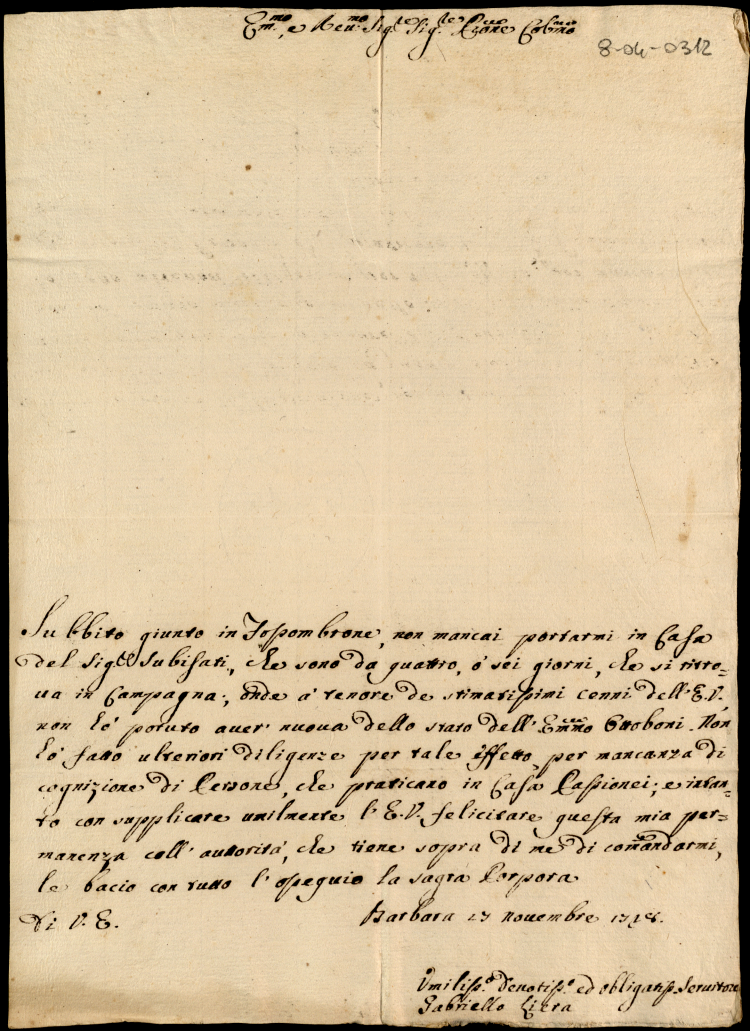 Em.mo, e Reu.mo Sig.re Sig.re Pr̃one Col.mo
8-04-0312
Subbito giunto in Fossombrone, non mancai portarmi in Casa
del Sig.re Subissati, che sono da quattro, ó sei giorni, che si ritro=
ua in Campagna; onde á tenore de stimatissimi cenni dell'E.V.
non hó potuto auer nuoua dello stato dell'Em̃mo Ottoboni. Non
hó fatto ulteriori diligenze per tale effetto, per mancanza di
cognizione di Persone, che praticano in Casa Passionei; e intan=
to con supplicare umilmente l'E.V. felicitare questa mia per=
manenza coll'auttoritá, che tiene sopra di me di com̃andarmi,
le bacio con tutto l'ossequio la sagra Porpora
Di V. E. Barbara 27 novembre
Umiliss.o Deuotiss.o ed obligatiss. Seruitore
Gabriello